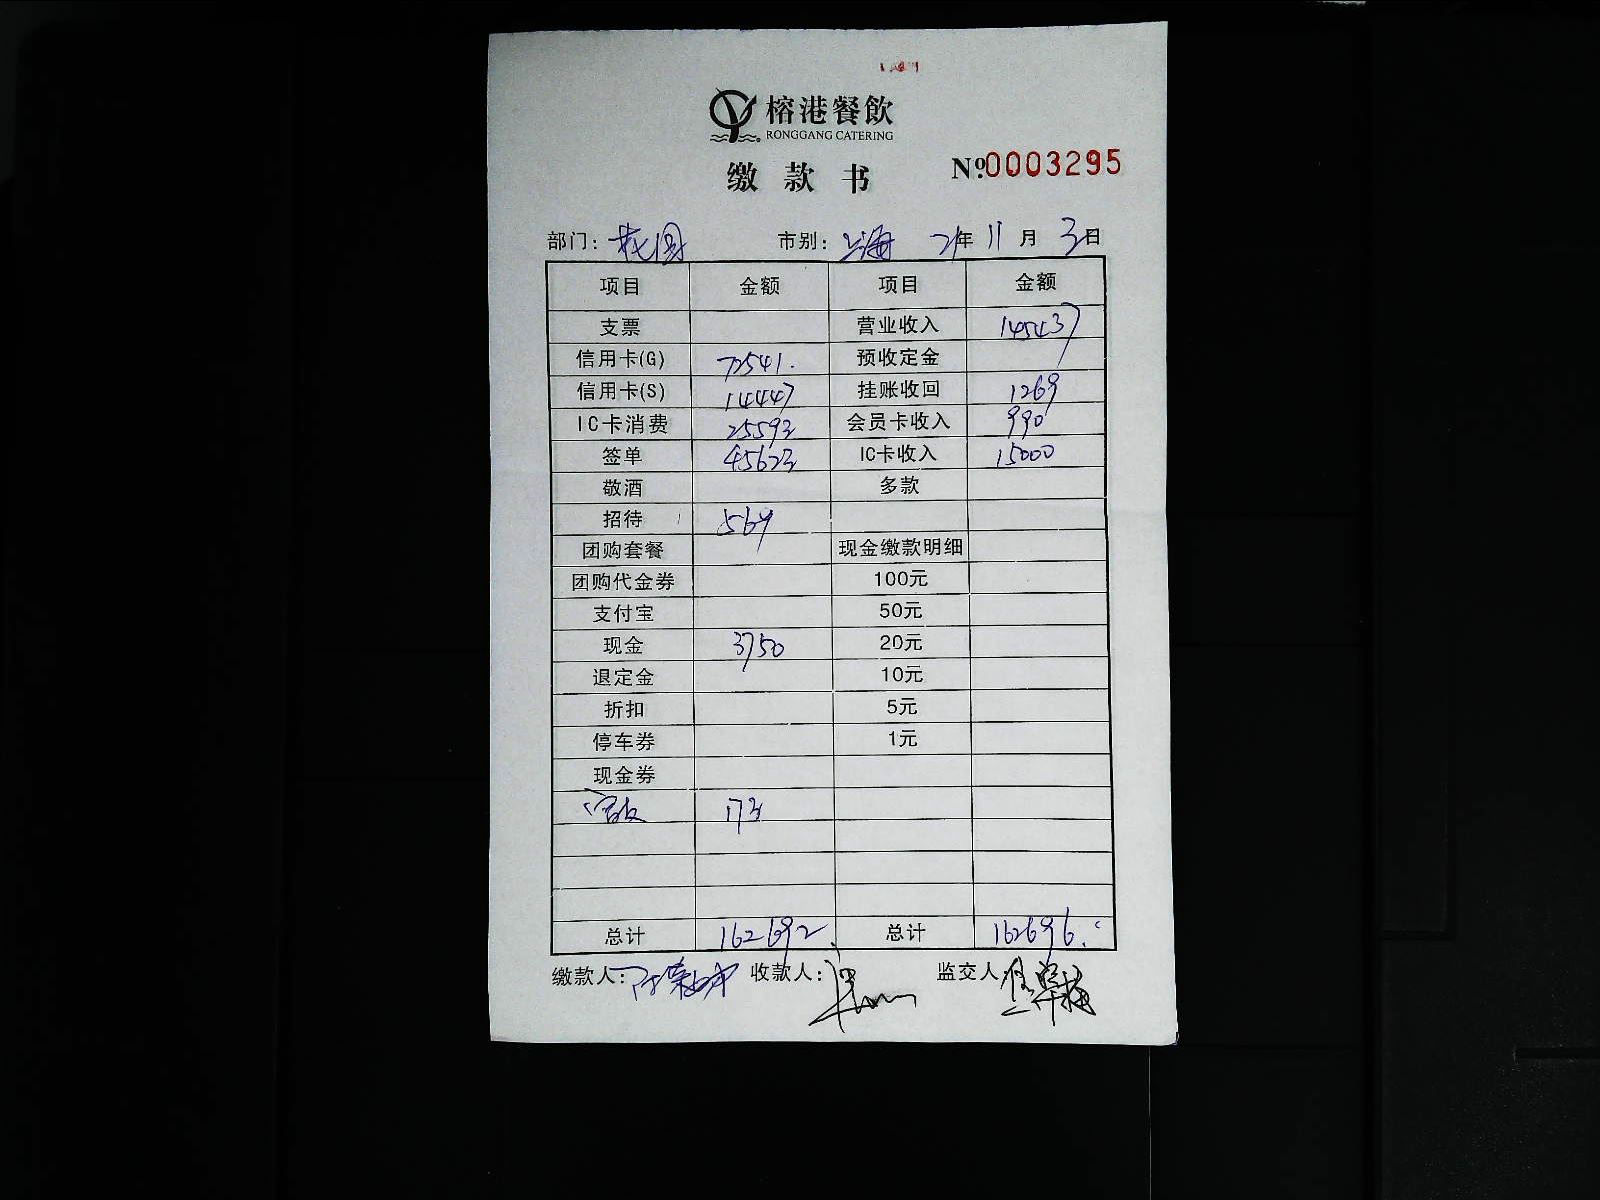 榕港餐飲
RONGGANG CATERING
缴款书 №0003295
部门: 市别: 上海 21年 11月 3日
项目 金额 项目 金额
支票 营业收入 145437
信用卡(G) 72541. 预收定金
信用卡(S) 14447 挂账收回 1269
IC卡消费 25593 会员卡收入 990
签单 45623 IC卡收入 15000
敬酒 多款
招待 569
团购套餐 现金缴款明细
团购代金券 100元
支付宝 50元
现金 3750 20元
退定金 10元
折扣 5元
停车券 1元
现金券
173
总计 162692 总计 162696
缴款人: 收款人: 监交人: